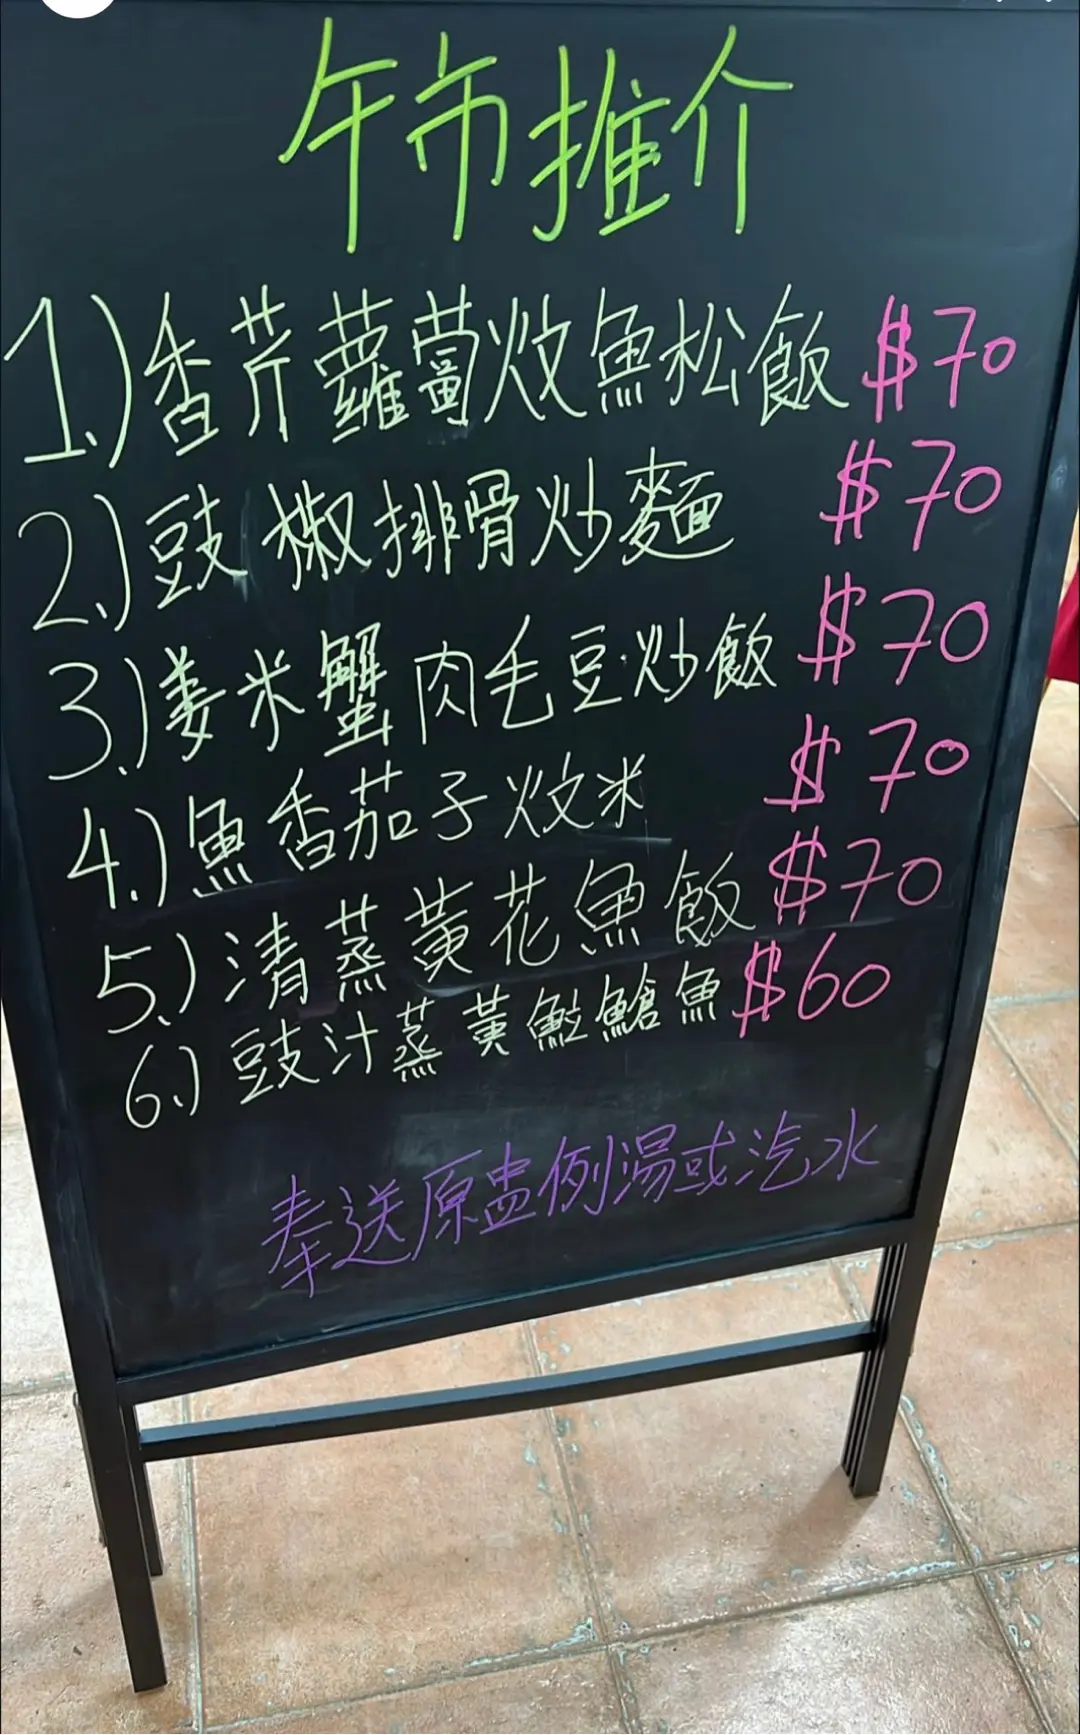 午市推介
1.) 香芹蘿蔔炆魚松飯 $70
2.) 豉椒排骨炒麵 $70
3.) 姜米蟹肉毛豆炒飯 $70
4.) 魚香茄子炆米 $70
5.) 清蒸黃花魚飯 $70
6.) 豉汁蒸黃𩶘䱽魚 $60
奉送原盅例湯或汽水